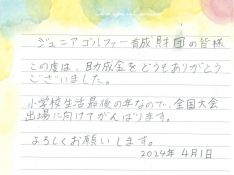 ジュニアゴルファー育成財団の皆様
この度は、助成金をどうもありがとう
ございました。
小学校生活最後の年なので、全国大会
出場に向けてがんばります。
よろしくお願いします。
2024年 4月1日